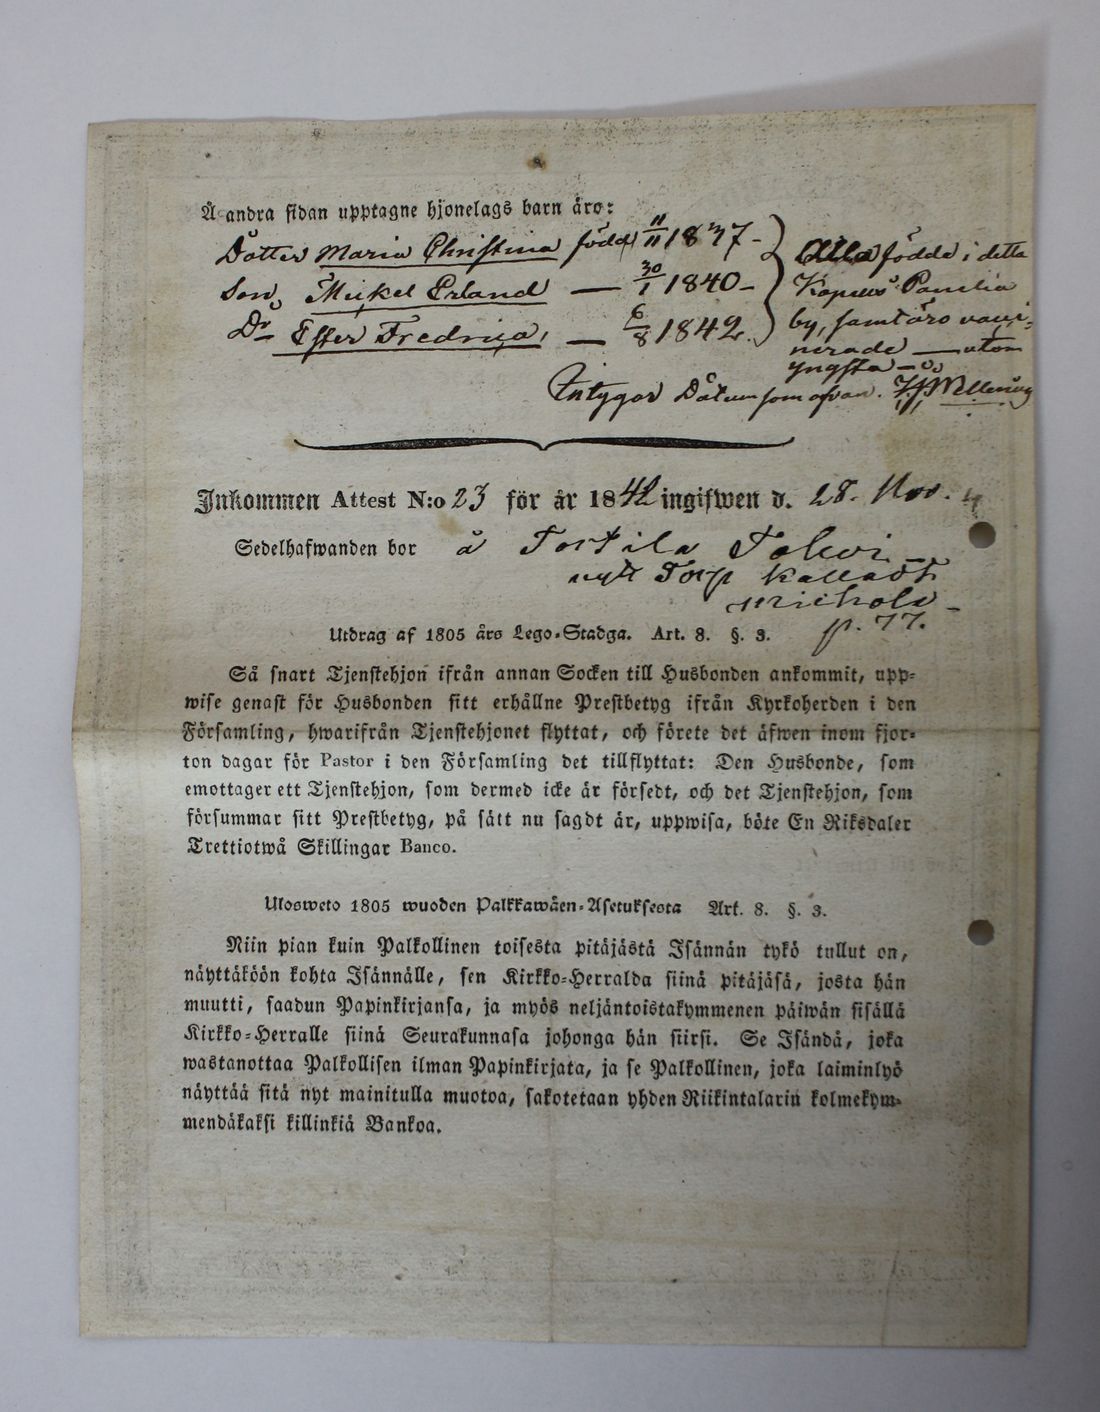 Å andra sidan upptagne hjonelags barn äro:
Dotter Maria Christina född 11/11 1837 -
Son, Mickel Erland — 30/1 1840 -
Dr Ester Fredrica, — 6/8 1842.
Alla födde i detta
Capells
by, samt äro vacci-
nerade — utom
yngsta
Intygar Datum som ofvan.
Inkommen Attest N:o 23 för år 1842 ingifwen d. 28. Nov.
Sedelhafwanden bor å Torkila
nytt Torp
p. 77.
Utdrag af 1805 års Lego-Stadga. Art. 8. §. 3.
Så snart Tjenstehjon ifrån annan Socken till Husbonden ankommit, upp-
wise genast för Husbonden sitt erhållne Prestbetyg ifrån Kyrkoherden i den
Församling, hwarifrån Tjenstehjonet flyttat, och förete det äfwen inom fjor-
ton dagar för Pastor i den Församling det tillflyttat: Den Husbonde, som
emottager ett Tjenstehjon, som dermed icke är försedt, och det Tjenstehjon, som
försummar sitt Prestbetyg, på sätt nu sagdt är, uppwisa, böte En Riksdaler
Trettiotwå Skillingar Banco.
Ulosweto 1805 wuoden Palkkawäen-Asetuksesta Art. 8. §. 3.
Niin pian kuin Palkollinen toisesta pitäjästä Isännän tykö tullut on,
näyttäköön kohta Isännälle, sen Kirkko-Herralda siinä pitäjäsä, josta hän
muutti, saadun Papinkirjansa, ja myös neljäntoistakymmenen päiwän sisällä
Kirkko-Herralle siinä Seurakunnasa johonga hän siirsi. Se Isändä, joka
wastanottaa Palkollisen ilman Papinkirjata, ja se Palkollinen, joka laiminlyö
näyttää sitä nyt mainitulla muotoa, sakotetaan yhden Riikintalarin kolmekym-
mendäkaksi killinkiä Bankoa.